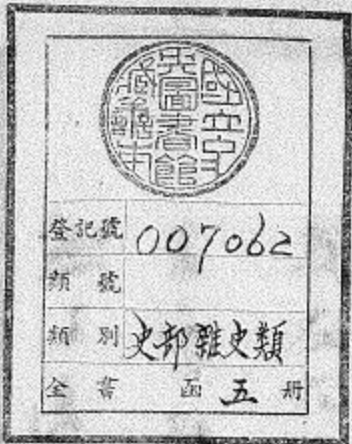 國立中
央圖書館
藏善本
登記號 007062
類號
類別 史部雜史類
全書 函 五 册